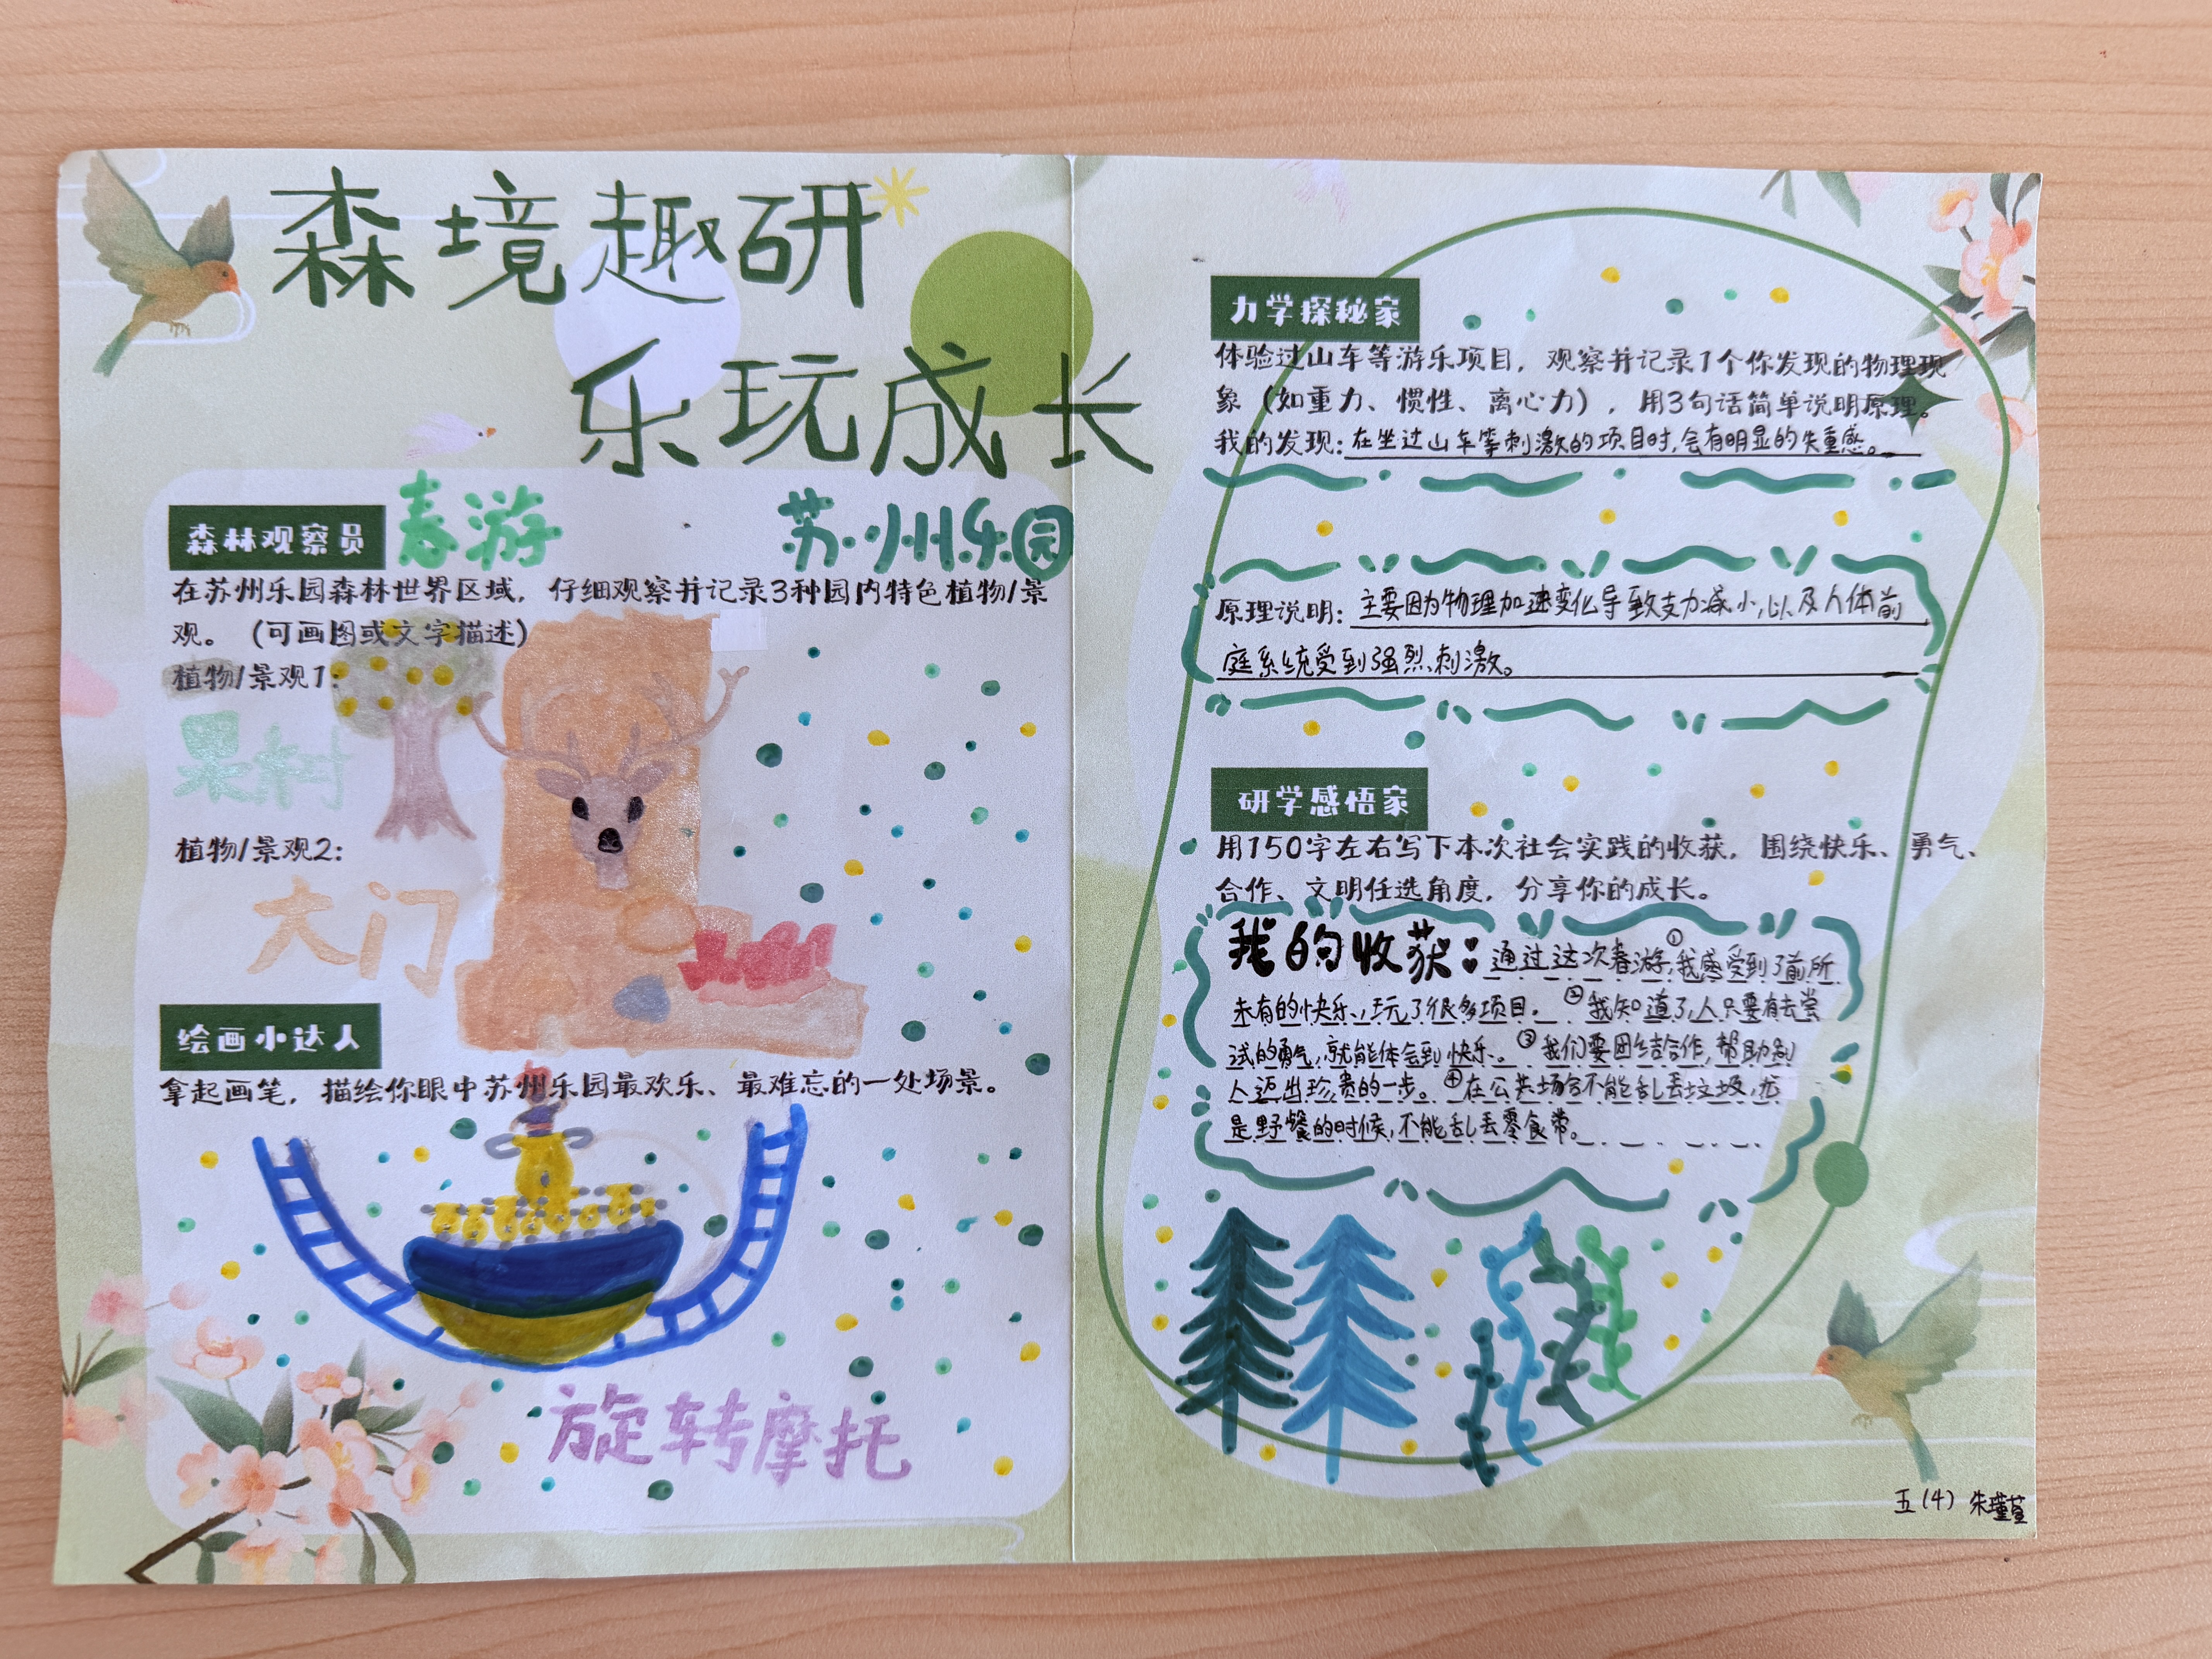 森境趣研
乐玩成长
森林观察员
春游
苏州乐园
在苏州乐园森林世界区域，仔细观察并记录3种园内特色植物/景
观。（可画图或文字描述）
植物/景观1：
果树
植物/景观2：
大门
绘画小达人
拿起画笔，描绘你眼中苏州乐园最欢乐、最难忘的一处场景。
旋转摩托
力学探秘家
体验过山车等游乐项目，观察并记录1个你发现的物理现
象（如重力、惯性、离心力），用3句话简单说明原理。
我的发现：在坐过山车等刺激的项目时，会有明显的失重感。
原理说明：主要因为物理加速变化导致支力减小，以及人体前
庭系统受到强烈刺激。
研学感悟家
用150字左右写下本次社会实践的收获，围绕快乐、勇气、
合作、文明任选角度，分享你的成长。
我的收获：通过这次春游，①我感受到了前所
未有的快乐，玩了很多项目。②我知道了，人只要有去尝
试的勇气，就能体会到快乐。③我们要团结合作，帮助别
人迈出珍贵的一步。④在公共场合不能乱丢垃圾，尤
是野餐的时候，不能乱丢零食带。
五（4）朱瑾萱